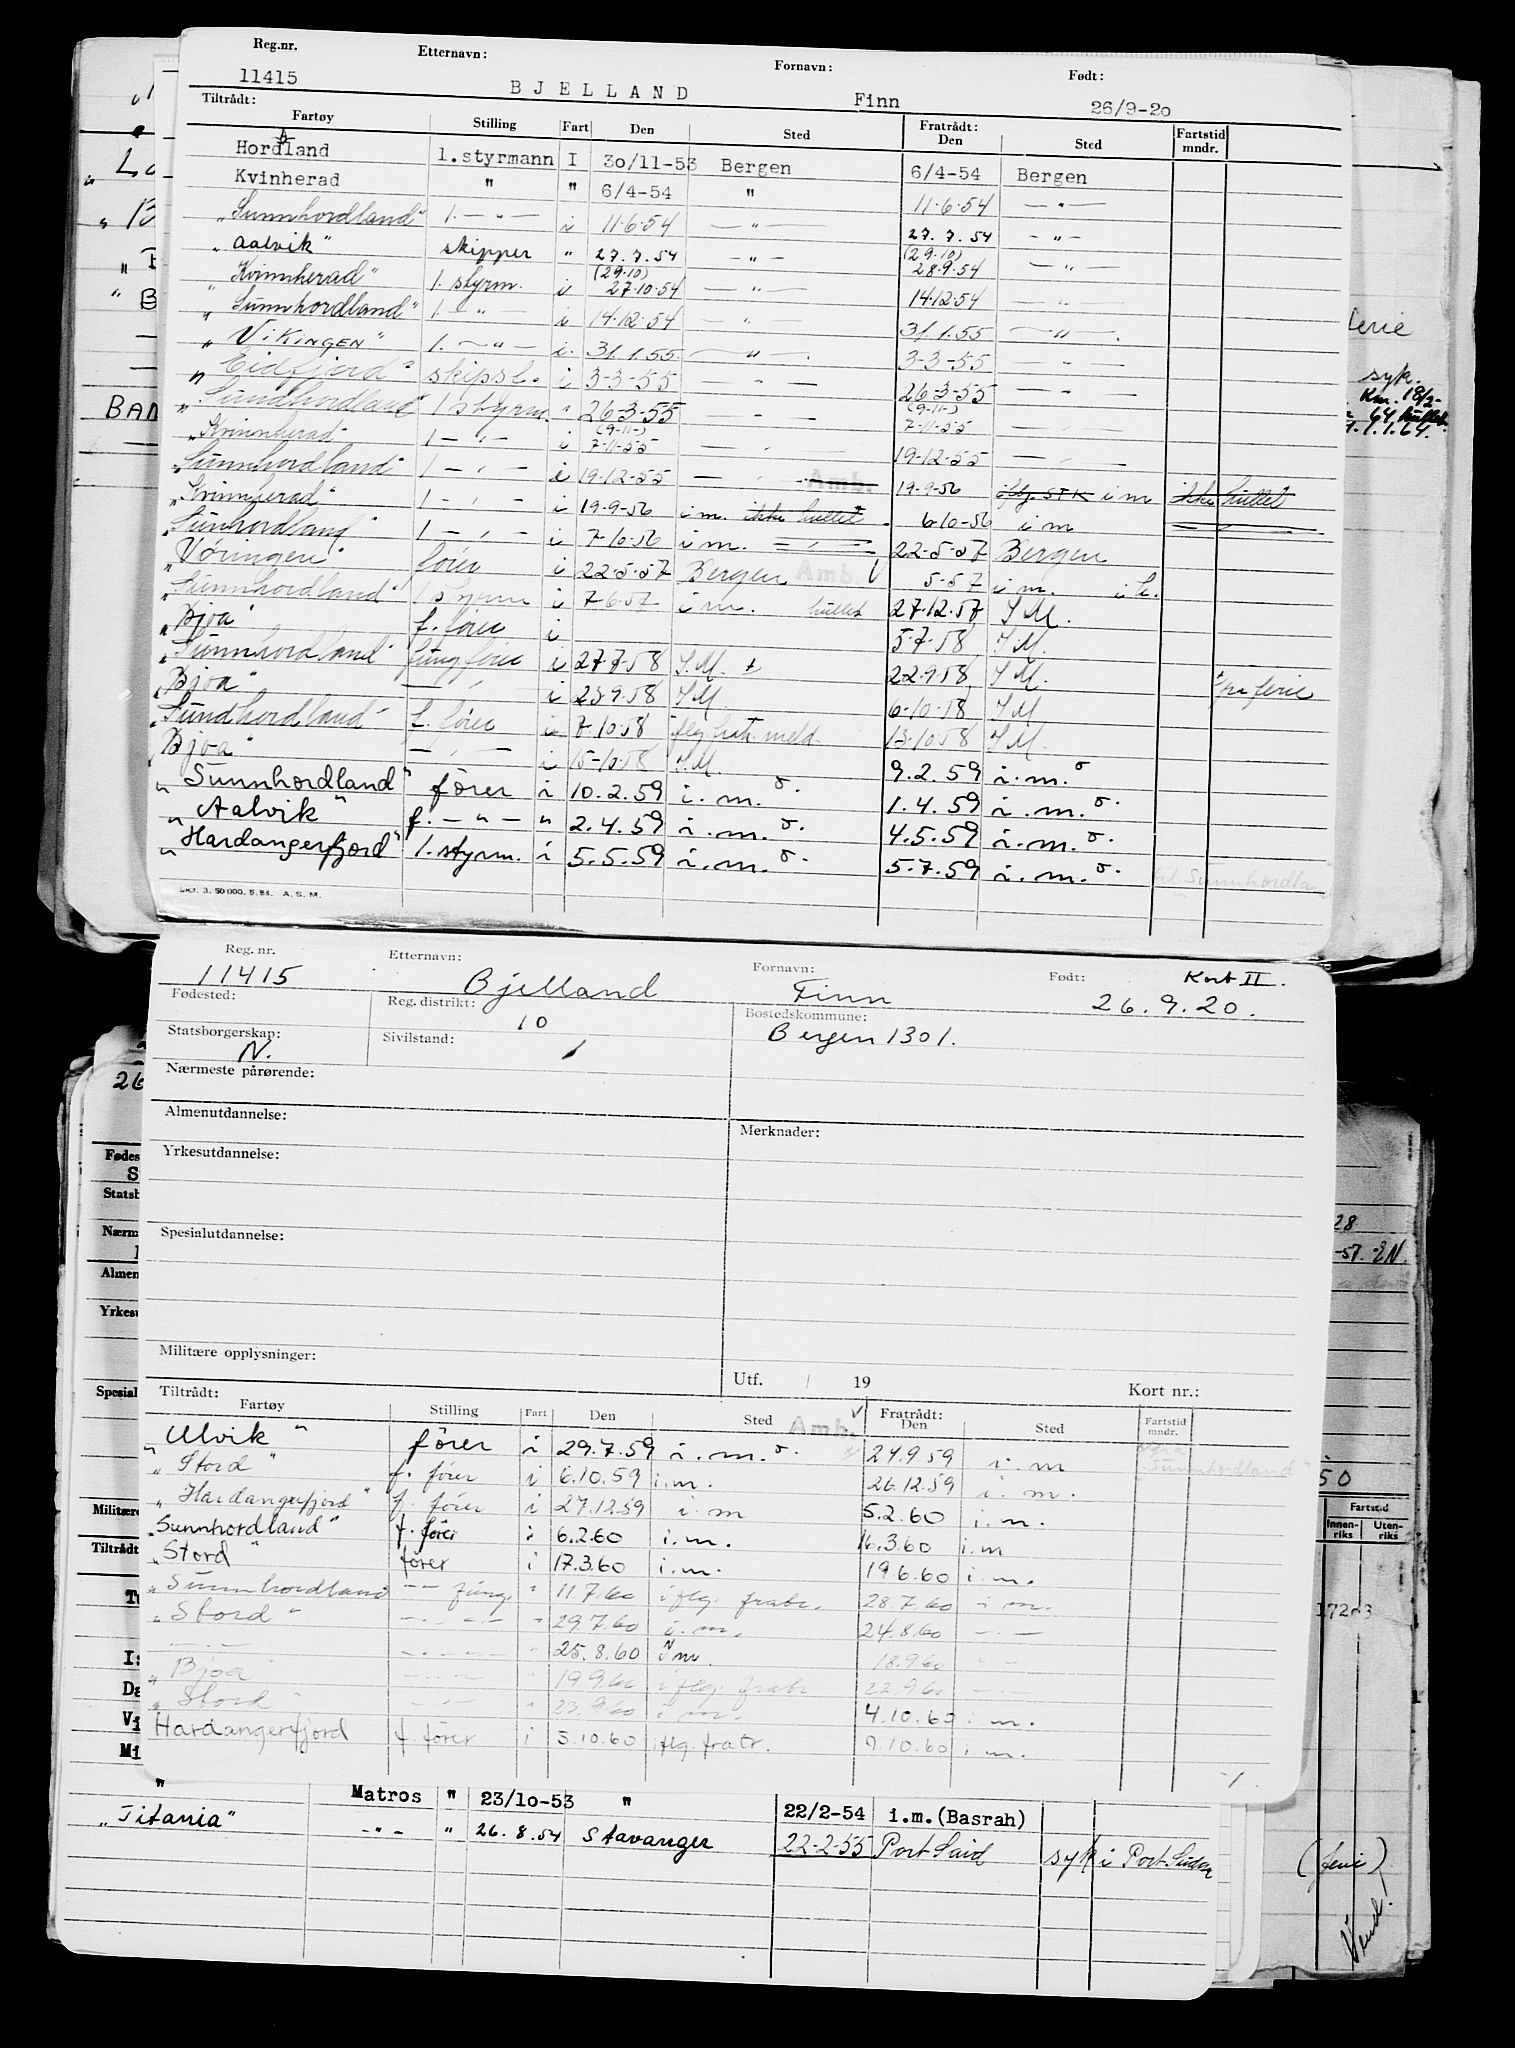 Reg.nr. Etternavn: Fornavn: Født:
11415 BJELLAND Finn 26/9-20
Tiltrådt: Fratrådt:
Fartøy Stilling Fart Den Sted Den Sted Fartstid mndr.
Hordaland 1.styrmann I 30/11-53 Bergen 6/4-54 Bergen
Kvinherad " " 6/4-54 " 11.6.54 — " —
"Sunnhordland" 1. — " — i 11.6.54 — " — 27.7.54 — " —
"Aalvik" skipper " 27.7.54 — " — (29.10) 28.9.54 — " —
"Kvinnherad" 1. styrm. i (29.10) 27.10.54 — " — 14.12.54 — " —
"Sunnhordland" 1. — " — i 14.12.54 — " — 31.1.55 — " —
"VIKINGEN" 1. — " — i. 31.1.55 — " — 3-3-55 — " —
"Eidfjord" skipsf. i 3-3-55 — " — 26-3-55 — " —
"Sundhordland" 1 styrm. " 26-3-55 — " — (9-11-) 7-11-55 — " —
"Kvinnherad" 1 — " — i (9-11-) 7-11-55 — " — 19-12-55 — " —
"Sunnhordland" 1 — " — i 19-12-55 — " — Amb. 19-9-56 iflg. STK i m ikke hullet
"Kvinnherad" 1 — " — i 19-9-56 i m. ikke hullet 6-10-56 i m
"Sunhordland" 1 — " — i 7-10-56 i m. — " — 22-5-57 Bergen
"Vøringen" fører i 22-5-57 Bergen Amb. 5-57 i m.
"Sunnhordland" 1 styrm i 7-6-57 i m. hullet 27-12-57 I M.
"Bjoa" f. fører i 5-7-58 I M.
"Sunnhordland" fung fører i 27-7-58 I.M. 22-9-58 I M. fra ferie
"Bjoa" — " — i 23-9-58 I M. 6-10-58 I M
"Sundhordland" f. fører i 7-10-58 iflg. fratr. meld. 13-10-58 I M.
"Bjoa" — " — i 15-10-58 I.M. 9.2.59 i.m.
"Sunnhordland" fører i 10.2.59 i.m. 1.4.59 i.m.
"Aalvik" f. — " — " 2.4.59 i.m. 4.5.59 i.m.
"Hardangerfjord" 1. styrm. i 5.5.59 i.m. 5.7.59 i.m. til Sunnhordland
3. 50 000. 5. 54. A. S. M.
Reg. nr. Etternavn: Fornavn: Født: Kort II.
11415 Bjelland Finn 26.9.20.
Fødested: Reg. distrikt: 10 Bostedskommune: Bergen 1301.
Statsborgerskap: N. Sivilstand:
Nærmeste pårørende:
Almenutdannelse: Merknader:
Yrkesutdannelse:
Spesialutdannelse:
Militære opplysninger:
Utf. / 19 Kort nr.:
Tiltrådt: Fratrådt:
Fartøy Stilling Fart Den Sted Amb. Den Sted Fartstid mndr.
"Ulvik" fører i 29.7.59 i.m. 24.9.59 i. m fra Sunnhordland"
"Stord" f. fører i 6.10.59 i.m. 26.12.59 i. m.
"Hardangerfjord" f. fører i 27.12.59 i m 5.2.60 i.m.
"Sunnhordland" f. fører i 6.2.60 i.m. 16.3.60 i m
"Stord" fører i 17.3.60 i.m. 19.6.60 i.m.
"Sunnhordland — " — fung. " 11.7.60 iflg. fratr. 28.7.60 i m.
"Stord" — " — " 29.7.60 i.m. 24.8.60 — " —
— " — — " — " 25.8.60 I m. 18.9.60 — " —
"Bjoa" — " — " 19.9.60 iflg. fratr 22.9.60 — " —
"Stord" — " — " 23.9.60 i m. 4.10.60 i. m.
Hardangerfjord f. fører i 5.10.60 iflg. fratr. 9.10.60 i m.
" Matros " 23/10-53 " 22/2-54 i.m.(Basrah)
"Titania" — " — " 26.8.54 Stavanger 22-2-55 Port Said syk i Port Sudan
(ferie)
Vend.